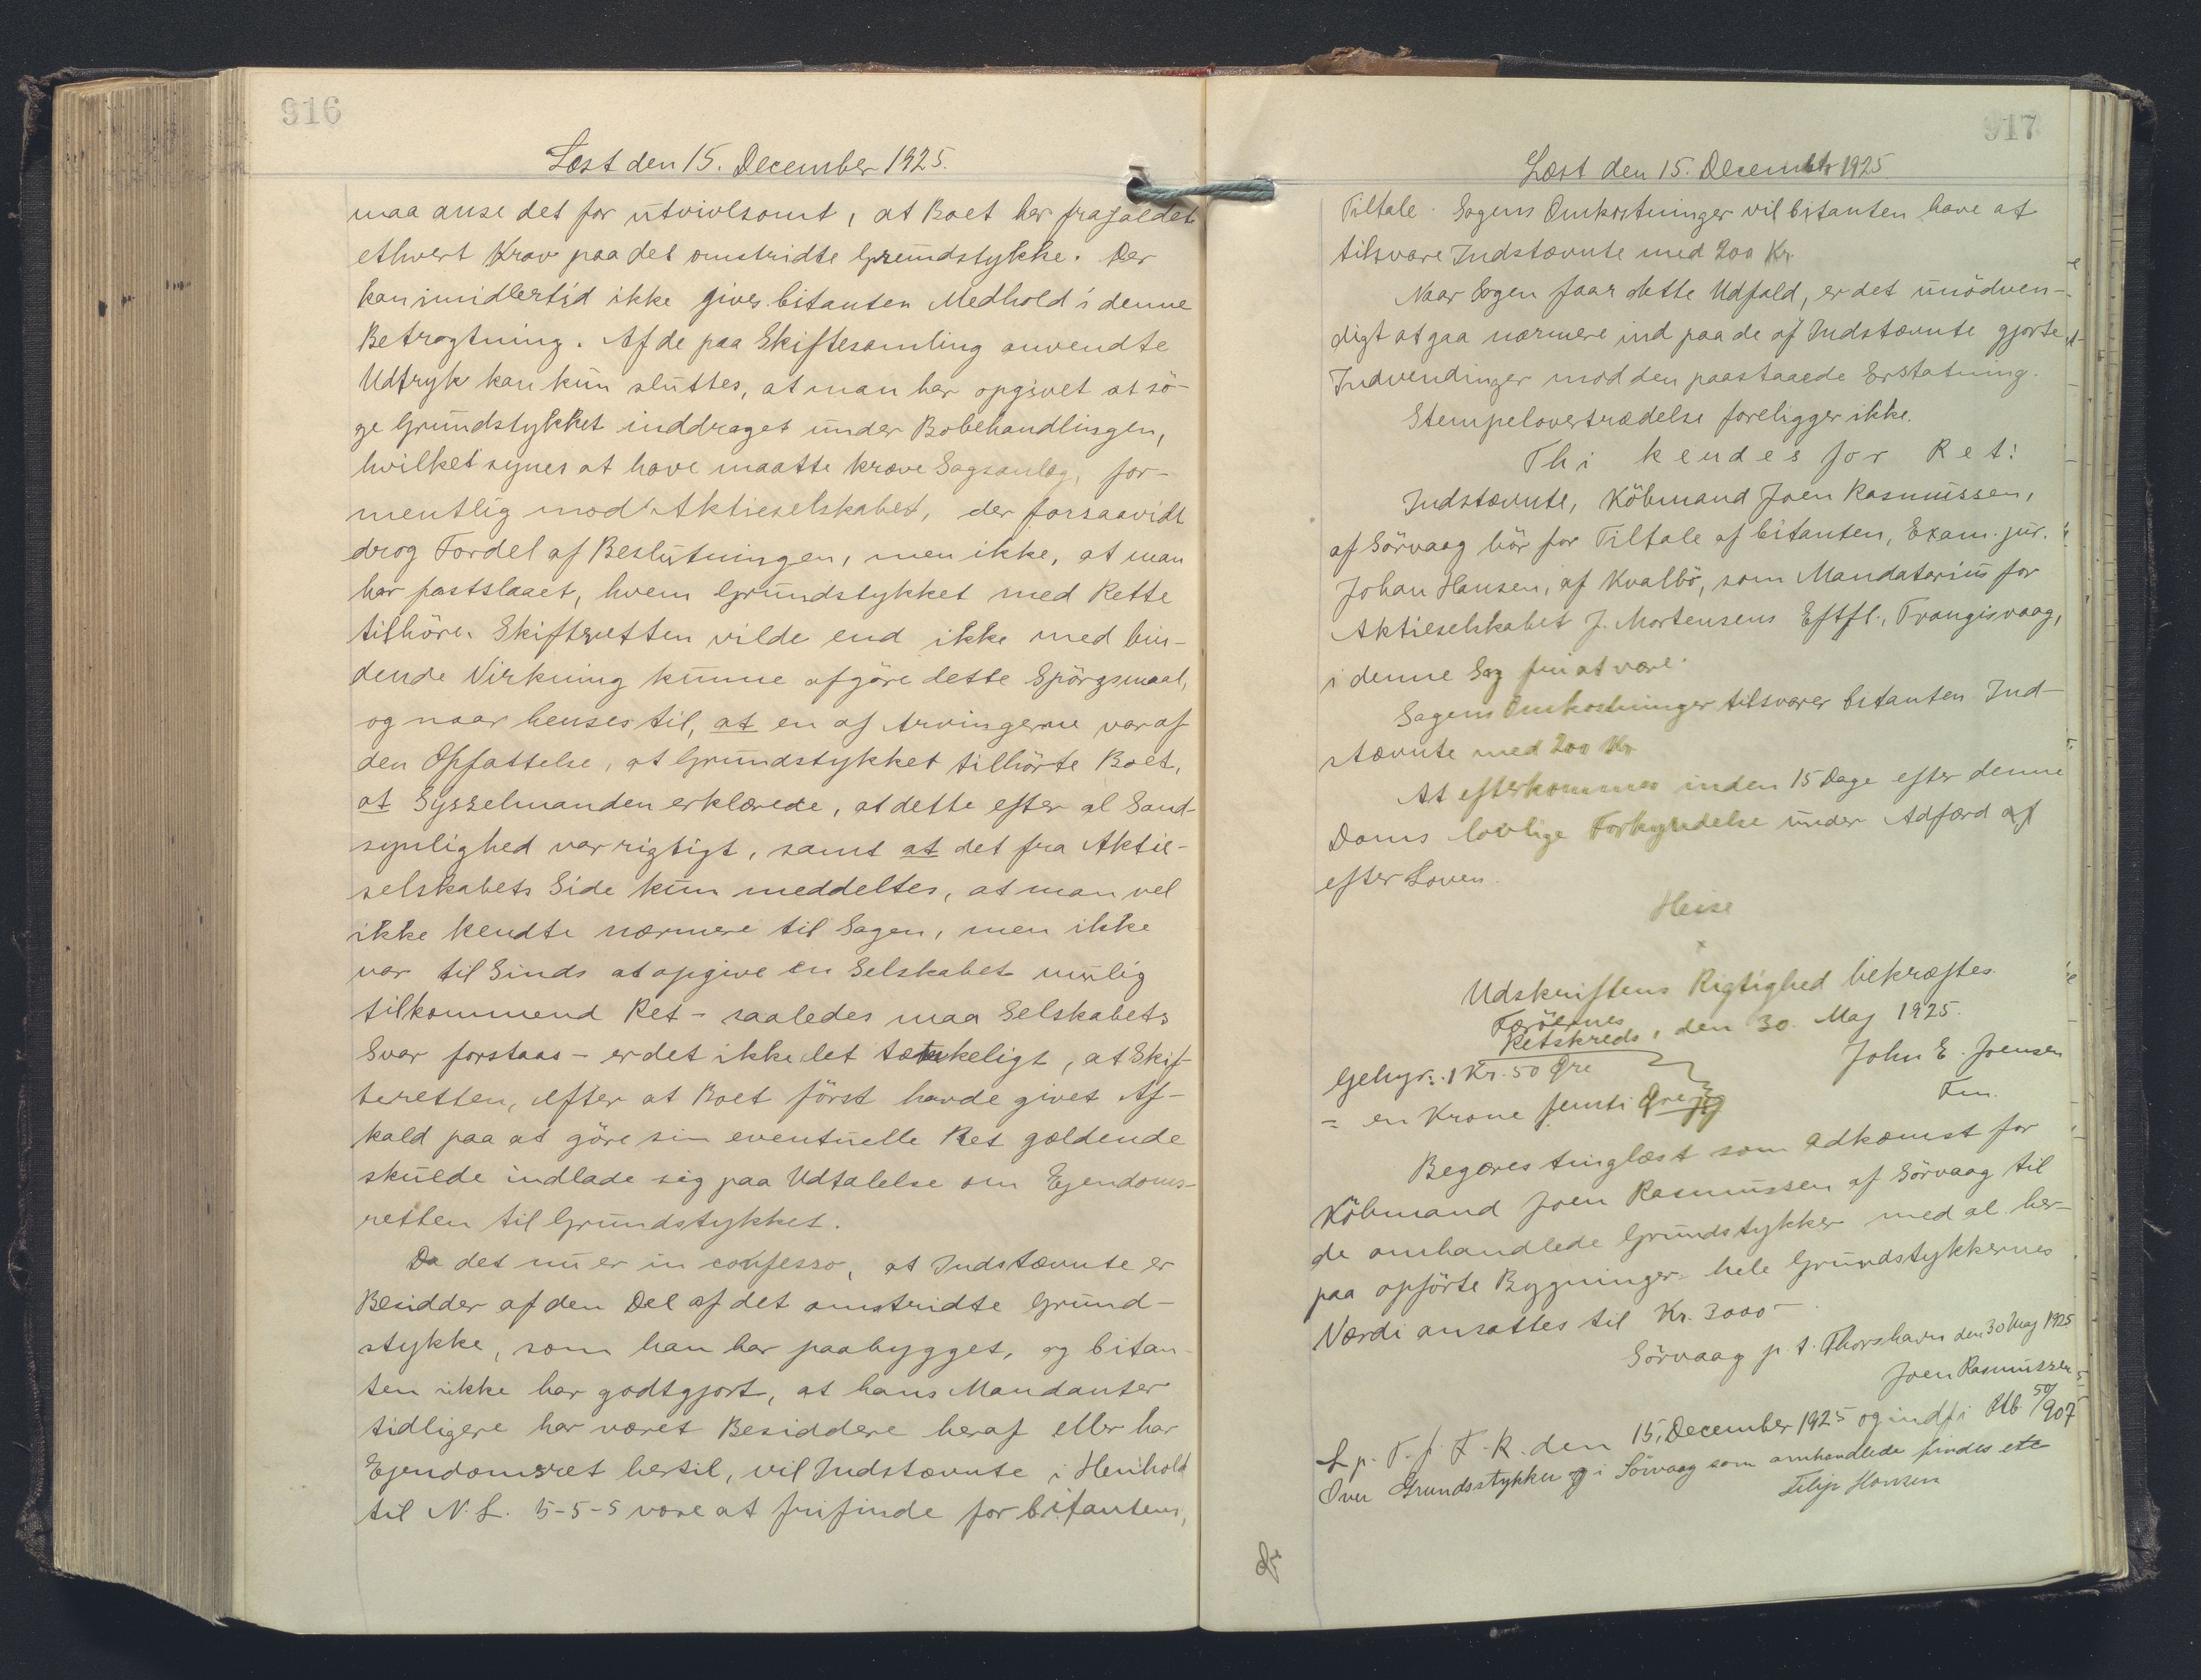 916
Læst den 15. December 1925.
maa anse det for utvivlsomt, at Boet har frafaldet
ethvert Krav paa det omstridte Grundstykke. Der
kan imidlertid ikke gives Citanten Medhold i denne
Betragtning. Af de paa Skiftesamling anvendte
Udtryk kan kun sluttes, at man har opgivet at sö-
ge Grundstykket inddraget under Bobehandlingen,
hvilket synes at have maatte kræve Sagsanlæg, for-
mentlig mod Aktieselskabet, der forsaavidt
drog Fordel af Beslutningen, men ikke, at man
har fastslaaet, hvem Grundstykket med Rette
tilhörer. Skifteretten vilde end ikke med bin-
dende Virkning kunne afgöre dette Spörgsmaal,
og naar henses til, at en af Arvingerne var af
den Opfattelse, at Grundstykket tilhörte Boet,
at Sysselmanden erklærede, at dette efter al Sand-
synlighed var rigtigt, samt at det fra Aktie-
selskabets Side kun meddeltes, at man vel
ikke kendte nærmere til Sagen, men ikke
var til Sinds at opgive en Selskabet mulig
tilkommend Ret - saaledes maa Selskabets
Svar forstaas - er det ikke let tænkeligt, at Skif-
teretten, efter at Boet först havde givet Af-
kald paa at göre sin eventuelle Ret gældende
skulde indlade sig paa Udtalelse om Ejendoms-
retten til Grundstykket.
Da det nu er in confesso, at Indstævnte er
Besidder af den Del af det omstridte Grund-
stykke, som han har paabygget, og Citan-
ten ikke har godtgjort, at hans Mandanter
tidligere har været Besiddere heraf eller har
Ejendomsret hertil, vil Indstævnte i Henhold
til N. L. 5-5-5 være at frifinde for Citantens,
917
Læst den 15. December 1925
Tiltale. Sagens Omkostninger vil Citanten have at
tilsvare Indstævnte med 200 Kr.
Naar Sagen faar dette Udfald, er det unödven-
digt at gaa nærmere ind paa de af Indstævnte gjorte
Indvendinger mod den paastaaede Erstatning.
Stempelovertrædelse foreligger ikke.
Thi kendes for Ret:
Indstævnte, Köbmand Joen Rasmussen,
af Sörvaag bör for Tiltale af Citanten, Exam. jur.
Johan Hansen, af Kvalbö, som Mandatarius for
Aktieselskabet J. Mortensens Eftfl., Trangisvaag,
i denne Sag fri at være.
Sagens Omkostninger tilsvarer Citanten Ind-
stævnte med 200 Kr
At efterkommes inden 15 Dage efter denne
Doms lovlige Forkyndelse under Adfærd af
efter Loven.
Heise
Udskriftens Rigtighed bekræftes.
Færöernes
Retskreds, den 30. Maj 1925.
John E. Joensen
Gebyr: 1 Kr. 50 Øre
Fm.
= en Krone femti Øre
Begæres tinglæst som Adkomst for
Köbmand Joen Rasmussen af Sörvaag til
de omhandlede Grundstykker med al her-
paa opförte Bygninger. hele Grundstykkernes
Værdi ansættes til Kr. 3000 -
Sörvaag p. t. Thorshavn den 30 Maj 1925
Joen Rasmussen
L p. T. f. F. R. den 15. December 1925 og indf i Utb 50/907
Over Grundsstykker i Sörvaag som omhandlede findes etc
Filip Hansen